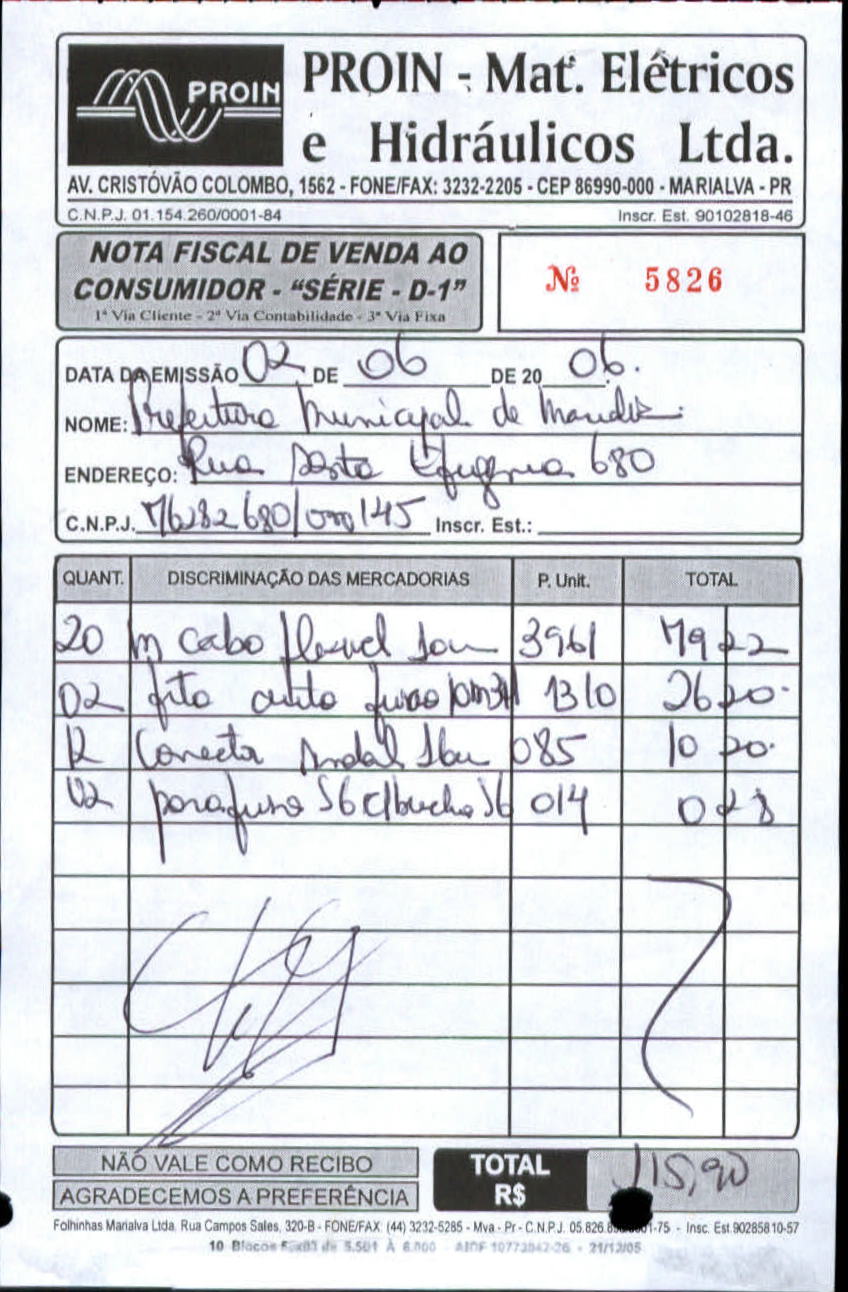 PROIN
PROIN - Mat. Elétricos
e Hidráulicos Ltda.
AV. CRISTÓVÃO COLOMBO, 1562 - FONE/FAX: 3232-2205 - CEP 86990-000 - MARIALVA - PR
C.N.P.J. 01.154.260/0001-84 Inscr. Est. 90102818-46
NOTA FISCAL DE VENDA AO
CONSUMIDOR - “SÉRIE - D-1”
1ª Via Cliente - 2ª Via Contabilidade - 3ª Via Fixa
Nº 5826
DATA DA EMISSÃO 02 DE 06 DE 20 06.
NOME: Prefeitura Municipal de
ENDEREÇO: Rua Santa Efigenia 680
C.N.P.J. 76282680/000145 Inscr. Est.:
QUANT. DISCRIMINAÇÃO DAS MERCADORIAS P. Unit. TOTAL
20 m cabo flexivel 3961 79 22
02 fita auto fusao 1310 26 20
12 Conecta 085 10 20
02 parafuso S6 c/bucha S6 014 0 28
NÃO VALE COMO RECIBO
AGRADECEMOS A PREFERÊNCIA
TOTAL R$ 115,90
Folhinhas Marialva Ltda. Rua Campos Sales, 320-B - FONE/FAX: (44) 3232-5285 - Mva - Pr - C.N.P.J. 05.826. 1-75 - Insc. Est.90285810-57
10 Blocos 5x03 de 5.501 À 6.000 - AIDF 10773042-26 - 21/12/05